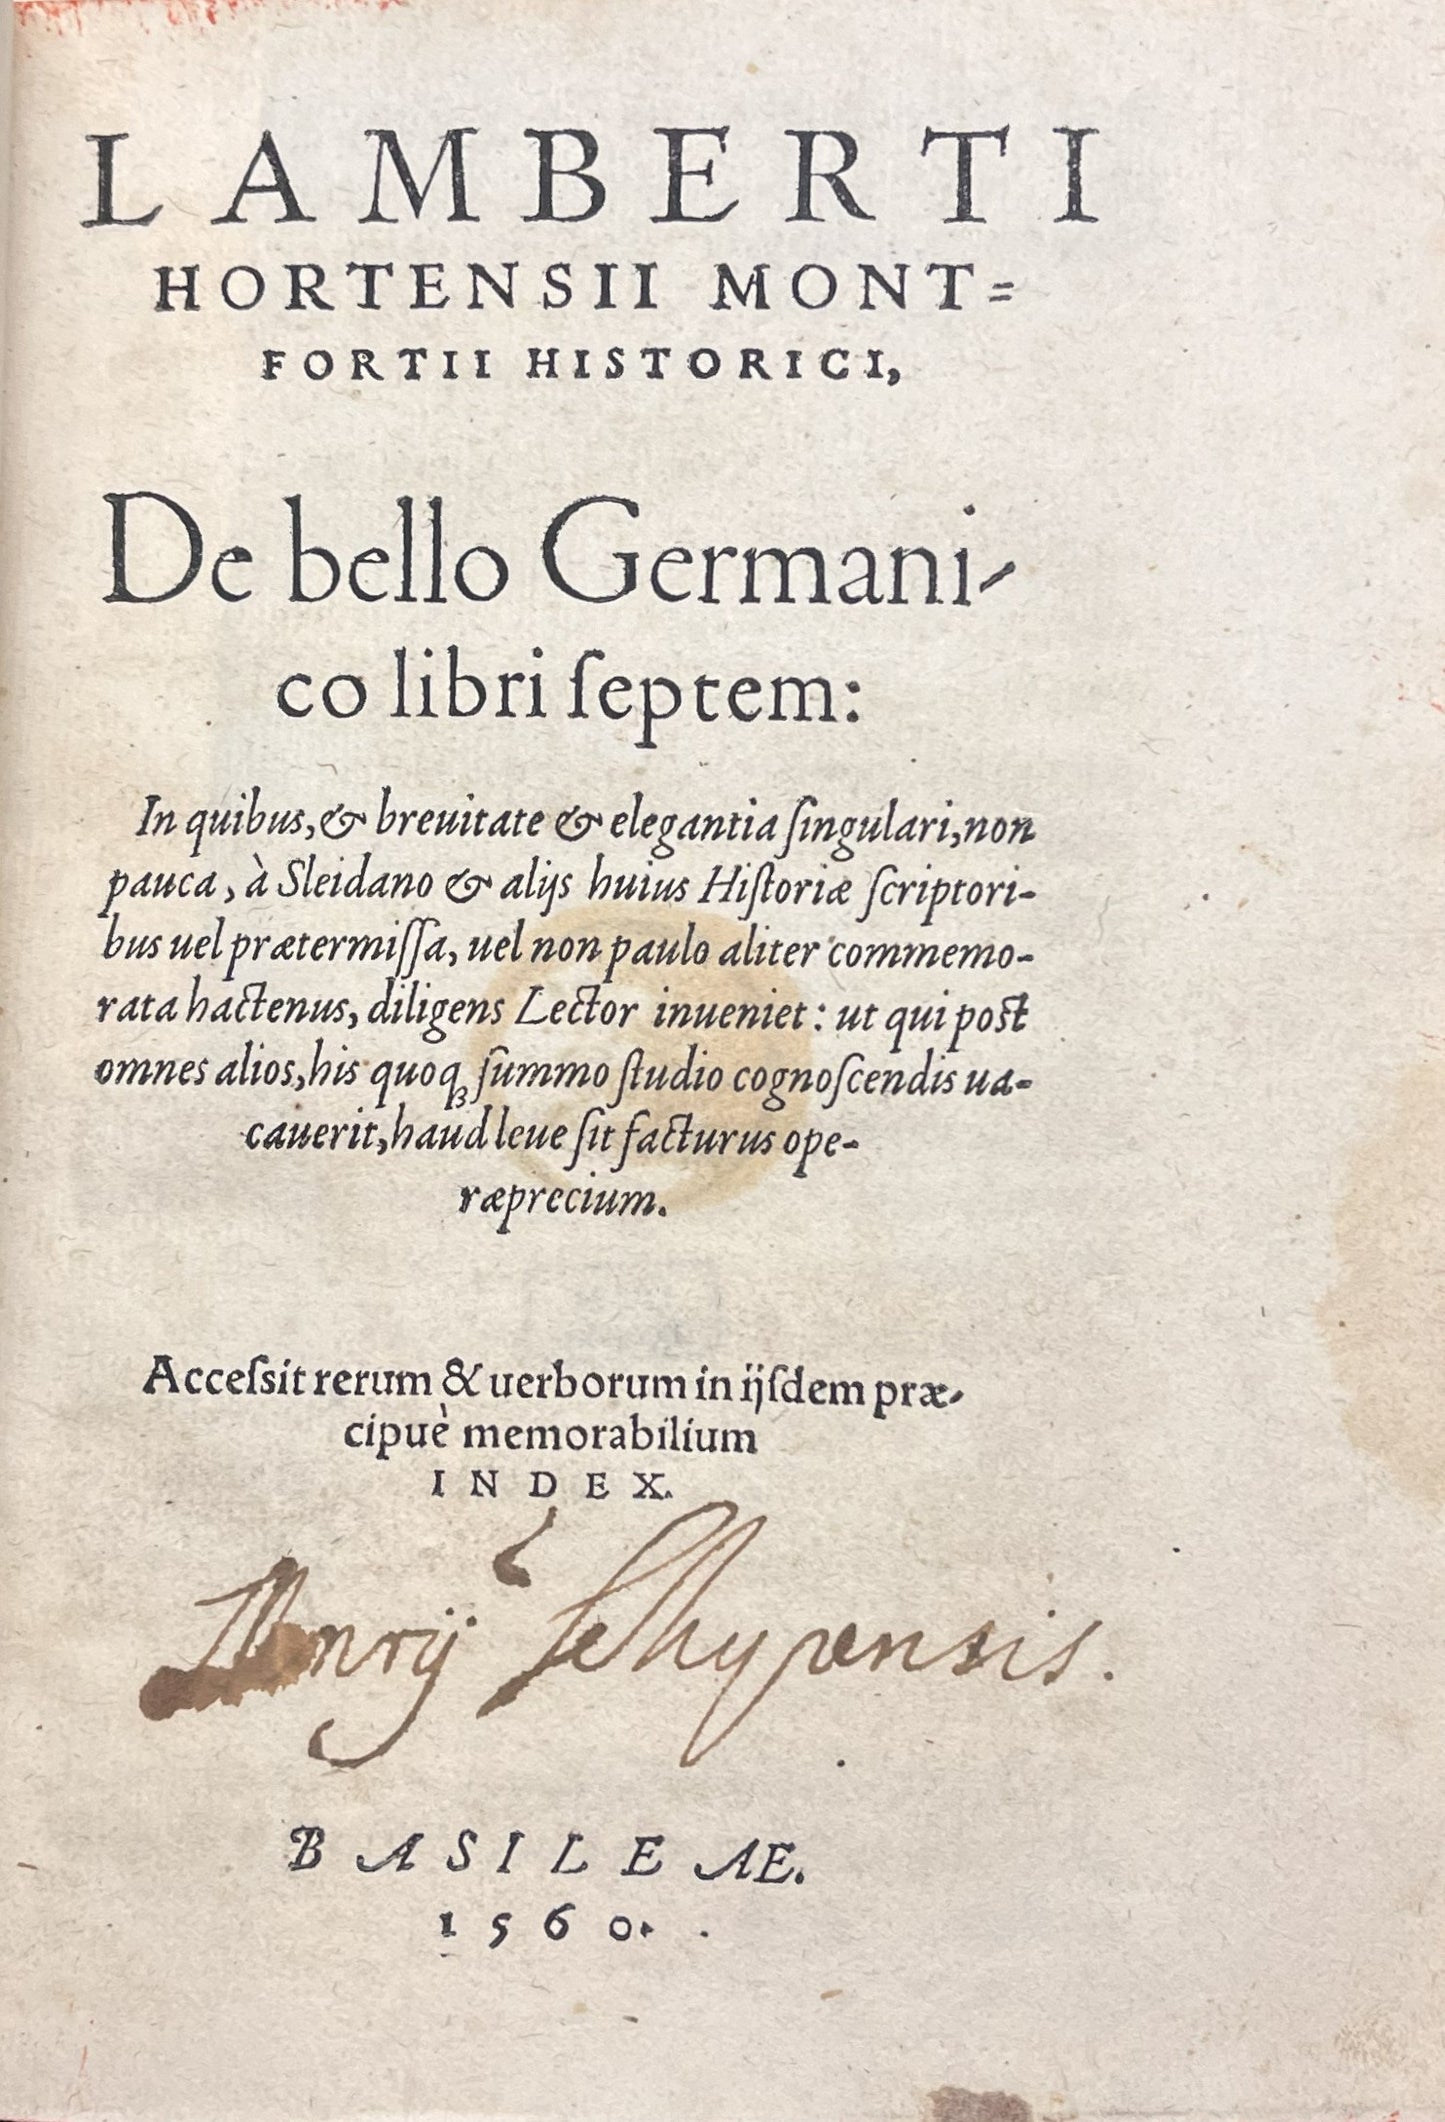 LAMBERTI
HORTENSII MONT=
FORTII HISTORICI,
De bello Germani-
co libri ſeptem:
In quibus, & breuitate & elegantia ſingulari, non
pauca, à Sleidano & alijs huius Hiſtoriæ ſcriptori-
bus uel prætermiſſa, uel non paulo aliter commemo-
rata hactenus, diligens Lector inueniet: ut qui post
omnes alios, his quoqꝫ ſummo ſtudio cognoſcendis ua-
cauerit, haud leue ſit facturus ope-
ræprecium.
Acceſsit rerum & uerborum in ijſdem præ-
cipuè memorabilium
INDEX.
BASILEAE.
1560.